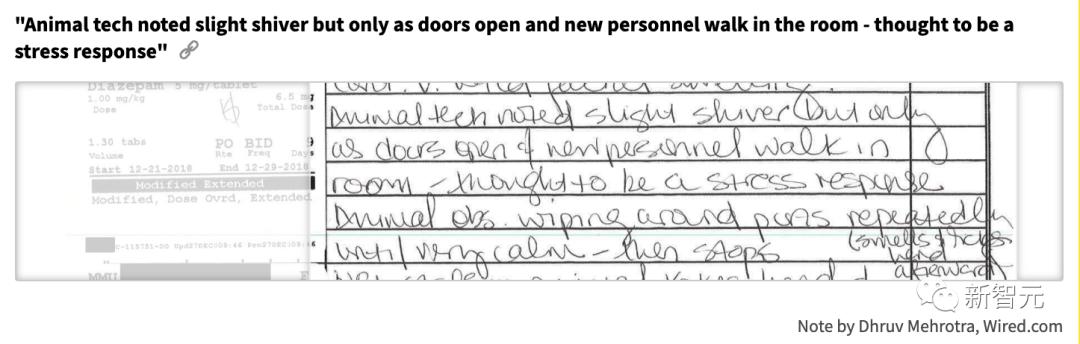 "Animal tech noted slight shiver but only as doors open and new personnel walk in the room - thought to be a
stress response"
Diazepam 5 mg/tablet
1.00 mg/kg
Dose
6.5 mg
Total Dose
1.30 tabs
Volume
PO BID
Rte Freq Days
Start 12-21-2018 End 12-29-2018
Modified Extended
Modified, Dose Ovrd, Extended
Animal tech noted slight shiver (but only
as doors open & new personnel walk in)
room - thought to be a stress response
Animal obs. wiping around ports repeatedly
until very calm - then stops
(smells & licks
hand
afterward)
新智元
Note by Dhruv Mehrotra, Wired.com